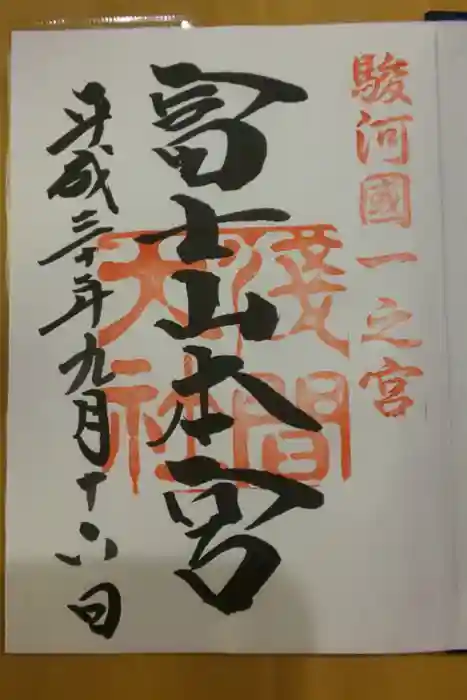 駿河國一之宮
冨士山本宮
淺間
大社
平成三十年九月十六日